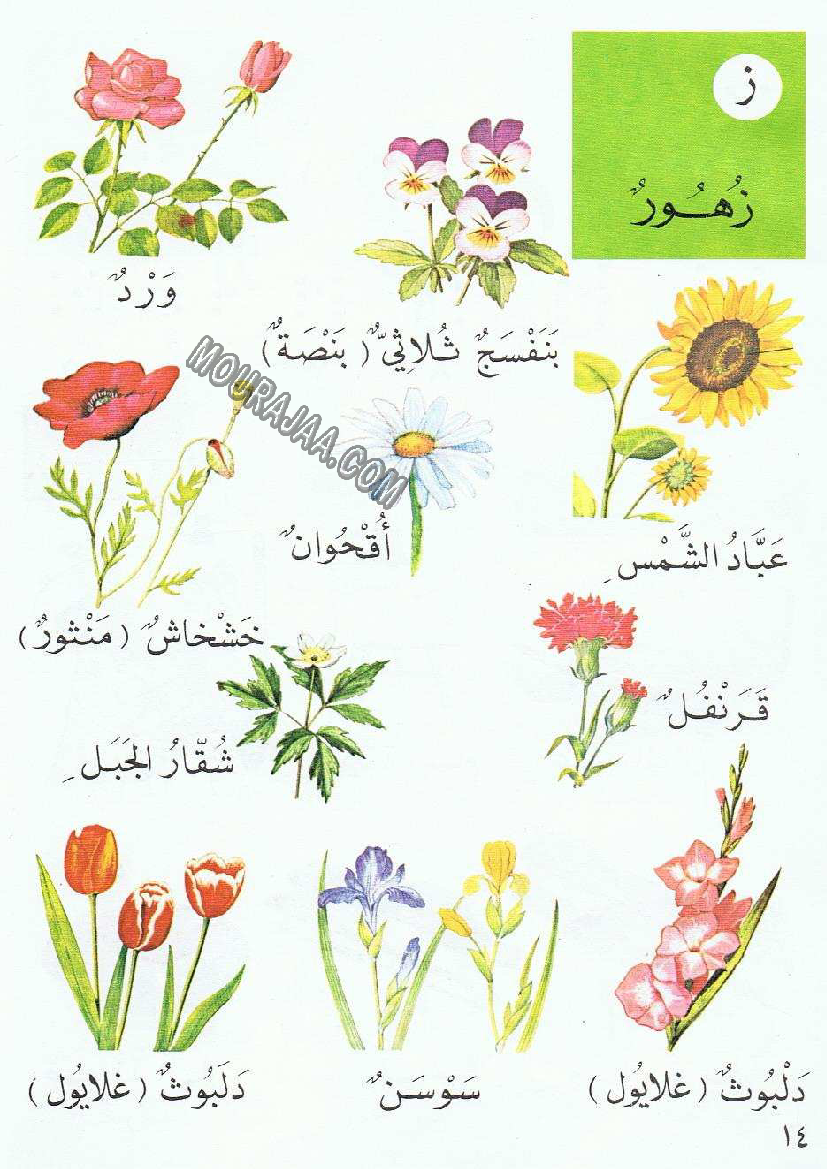 ز
زُهُـورٌ
وَرْدٌ
بَنَفْسَجٌ ثُلاثِيٌّ (بَنْصَةٌ)
MOURAJAA.COM
عَبَّادُ الشَّمْسِ
أُقْحُوانٌ
خَشْخاشٌ (مَنْثورٌ)
قَرَنْفُلٌ
شُقّارُ الجَبَلِ
دَلْبُوثٌ (غلايُول)
سَوْسَنٌ
دَلَبُوثٌ (غلايُول)
١٤